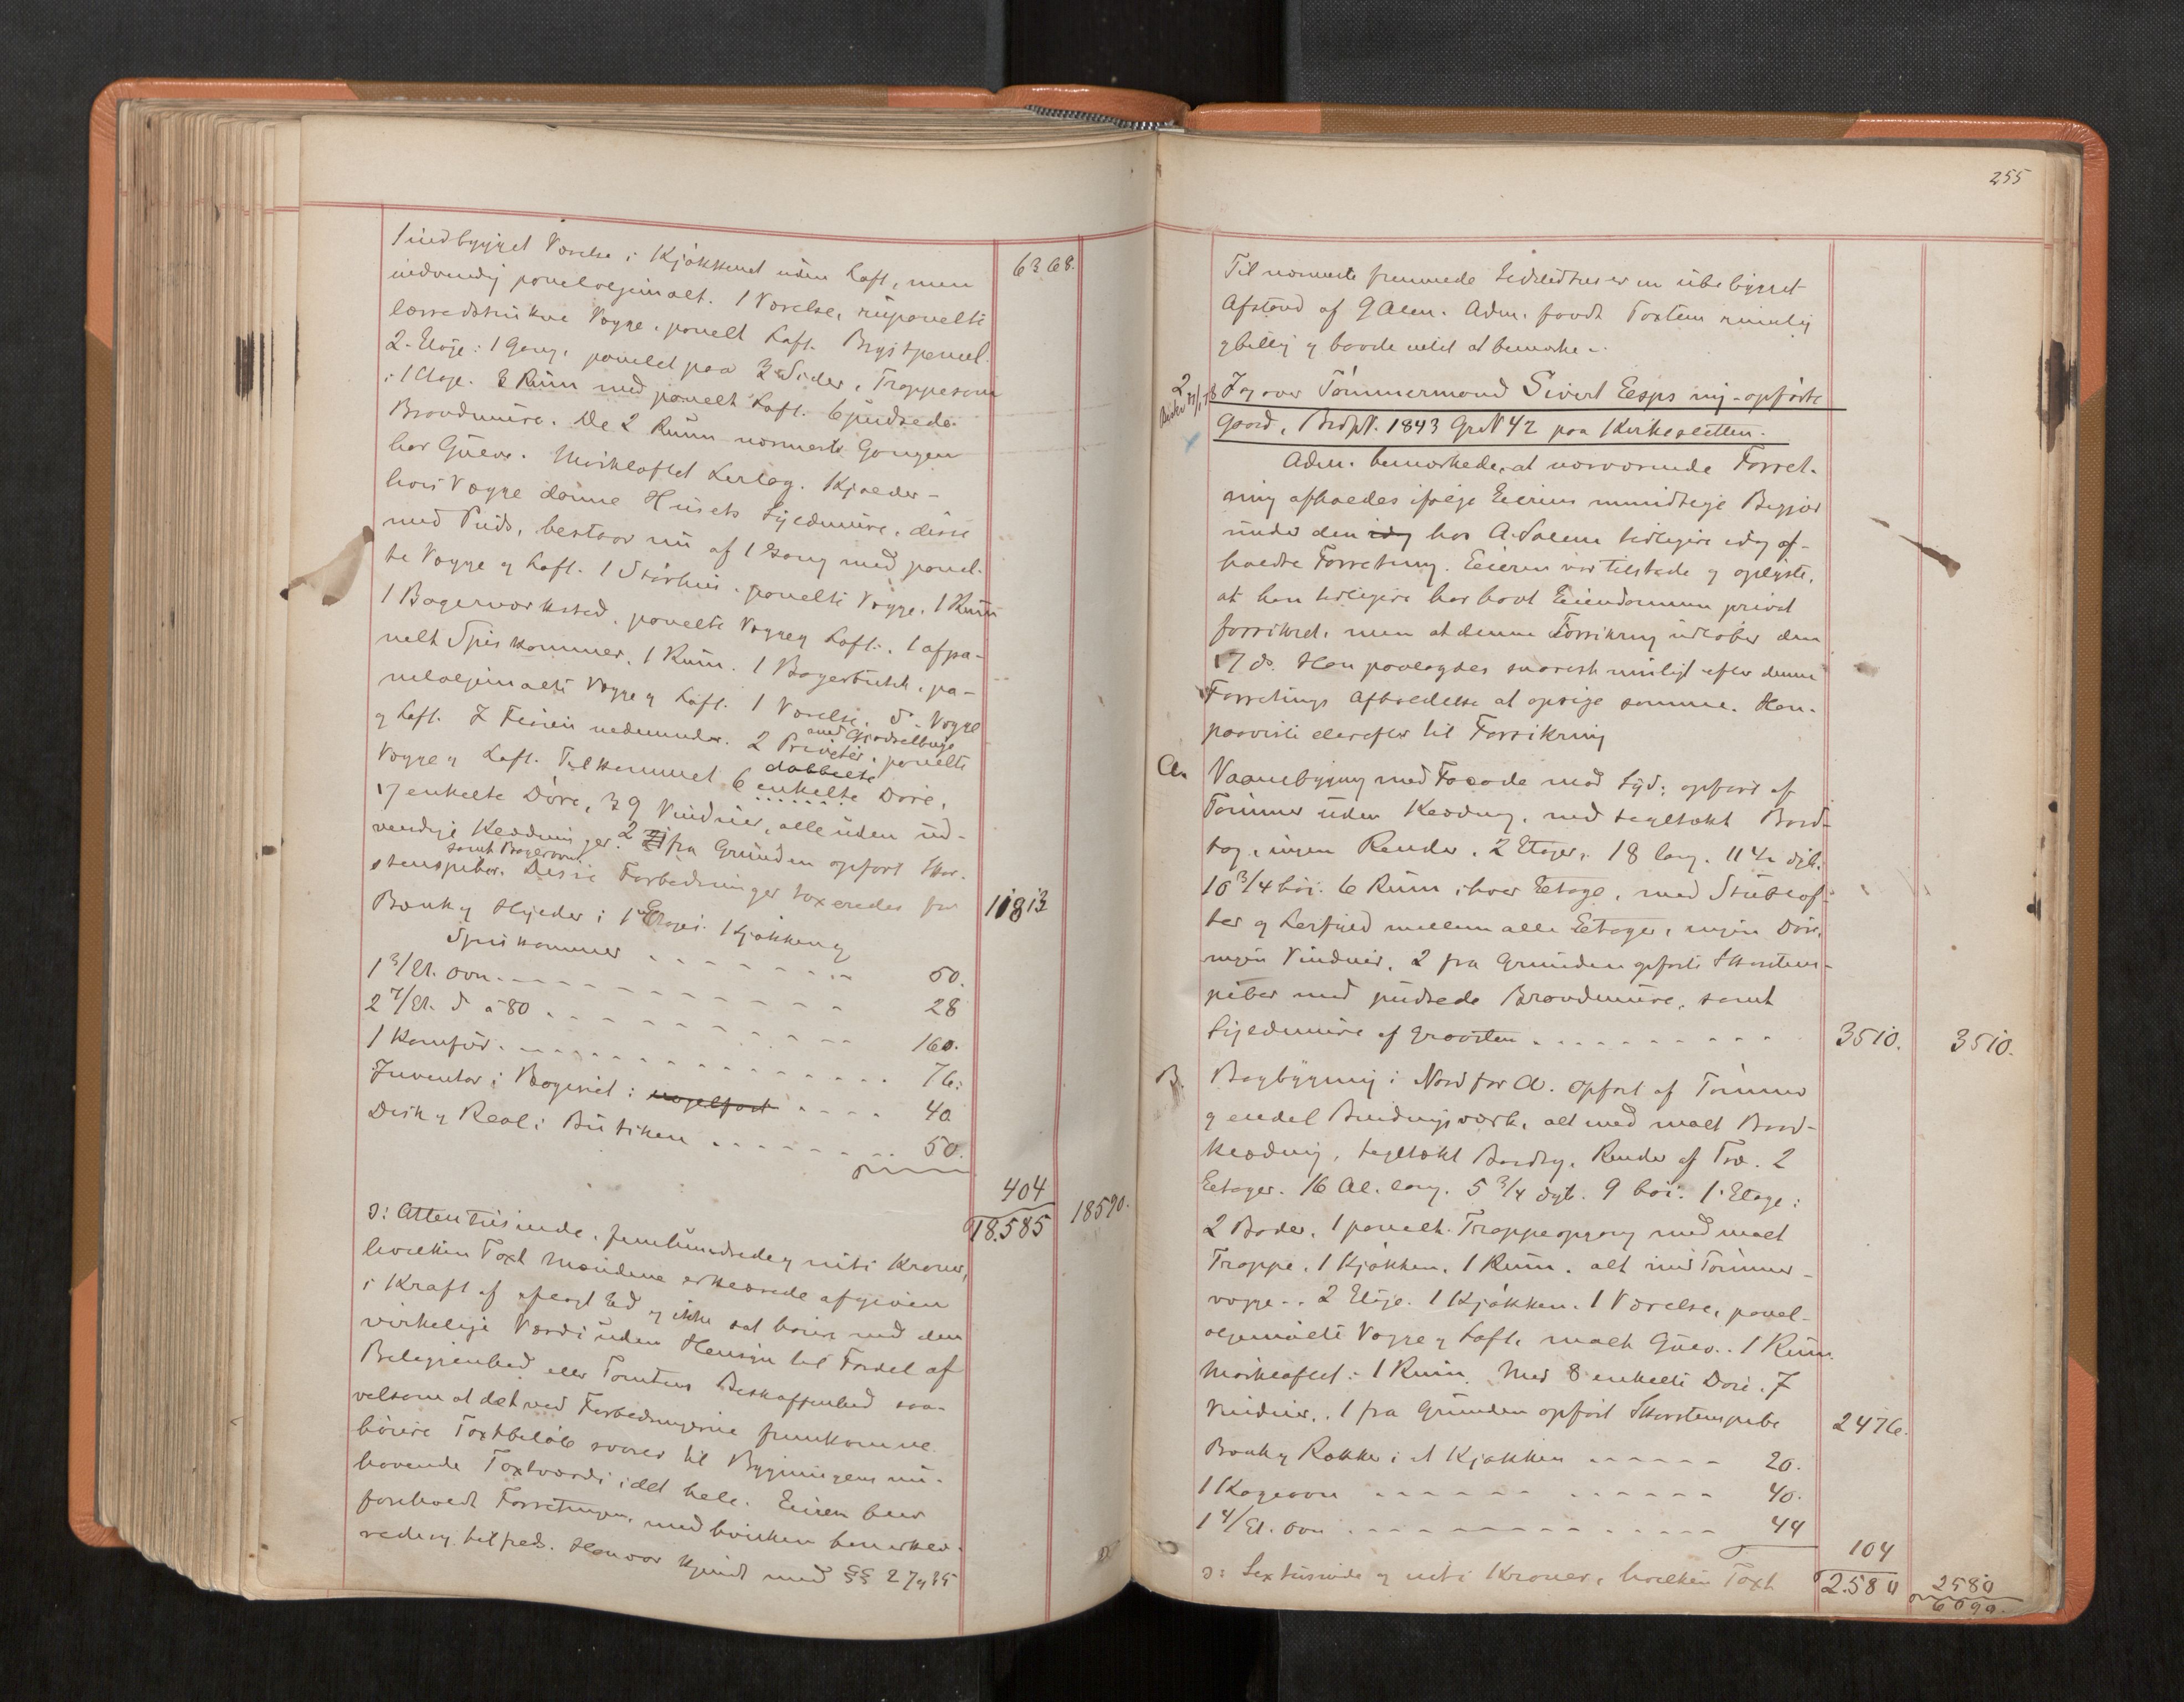 1 indbygget Værelse i Kjøkkenet uden Loft, men 6368.
indvendig paneloljemalt. 1 Værelse, rupanelte
lærredstrukne Vægge, panelt Loft. Brystpanel.
2. Etage: 1 Gang, panelet paa 3 Sider, Trappe som
i 1 Etage. 8 Rum med panelt Loft. 6 pudsede
Brandmure. De 2 Rum nærmest Gangen
har Gulv. Mørkloftet Lerlag. Kjælder-
hvis Vægge danne Husets Syldmure, disse
med Puds, bestaar nu af 1 Gang med panel-
te Vægge og Loft. 1 Størhus, panelte Vægge. 1 Rum
1 Bagerværksted, panelte Vægge og Loft. 1 afpa-
nelt Spiskammer. 1 Rum. 1 Bagerbutik, pa-
neloljemalte Vægge og Loft. 1 Værelse, d. Vægge
og Loft. I Fløien nedenunder
med Gjødselbinge
2 Priveter, panelte
Vægge og Loft. Tilkommet 6
dobbelte
enkelte Døre,
17 enkelte Døre, 39 Vinduer, alle uden ud-
vendige Klædninger. 2 fra Grunden opført Skor-
samt Bagerovn
stenspiber. Disse Forbedringer taxeredes for 11813
Bænk og Hylder i 1 Etages Kjøkken og
Spiskammer 50.
1 3/Et. Ovn 28
2 7/Et. d à 80 160.
1 Komfur 76.
Inventar i Bageriet: 40
Disk og Real i Butiken 50.
404
18.585 18590.
ɔ: Atten Tusinde, femhundrede og niti Kroner,
hvilken Taxt Mændene erklærede afgiven
i Kraft af aflagt Ed og ikke sat høiere end den
virkelige Værdi uden Hensyn til Fordel af
Beliggenhed eller Tomtens Beskaffenhed saa-
velsom at det ved Forbedringerne fremkomne
høiere Taxtbeløb svarer til Bygningens nu-
havende Taxtværdi i det hele. Eieren blev
foreholdt Forretningen, med hvilken han erklæ-
rede sig tilfreds. Han var kjendt med §§ 27 og 35
255
Til nærmeste fremmede Ildsted er en ubebygget
Afstand af 9 Alen. Adm. fandt Taxten rimelig
og billig og havde intet at bemærke.
2 Tag over Tømmermand Sivert Eesps ny-opførte
Gaard, Brdpl. 1843 Gr. N 42 paa Kirkesletten.
Adm. bemærkede, at nærværende Forret-
ning afholdes ifølge Eierens mundtlige Begjær
under den idag hos A. Solem tidligere idag af-
holdte Forretning. Eieren var tilstede og oplyste,
at han tidligere har havt Eiendommen privat
forsikret, men at denne Forsikring udløber den
17 ds. Han paalagdes snarest muligt efter denne
Forretnings Afholdelse at opsige samme. Han
paaviste derefter til Forsikring
A. Vaanebygning med Facade mod Syd, opført af
Tømmer uden Klædning, med tegltækt Bord-
tag, ingen Render. 2 Etager, 18 lang. 11 1/2 dyb.
10 3/4 høi. 6 Rum i hver Etage, med Stubloft-
ter og Lerfyld mellem alle Etager, ingen Døre,
ingen Vinduer, 2 fra Grunden opførte Skorstens-
piber med pudsede Brandmure, samt
Syldmure af Graasten 3510. 3510.
B. Bagbygning i Nord for A. opført af Tømmer
og endel Bindingsværk, alt med malt Bord-
klædning, tegltækt Bordtag, Render af Træ. 2
Etager. 16 Al. lang. 5 3/4 dyb. 9 høi. 1. Etage:
2 Boder, 1 panelt Trappeopgang med malt
Trappe. 1 Kjøkken. 1 Rum. alt med Tømmer-
vægge. 2 Etage. 1 Kjøkken. 1 Værelse, panel-
oljemalte Vægge og Loft, malt Gulv. 1 Rum.
Mørkloftet: 1 Rum. Med 8 enkelte Døre, 7
Vinduer. 1 fra Grunden opført Skorstenspibe 2476.
Bænk og Rækker i et Kjøkken 20.
1 Kogeovn 40.
1 4/Et. Ovn 44
104
ɔ: Sex tusinde og niti Kroner, hvilken Taxt 2.580 2580
6090.